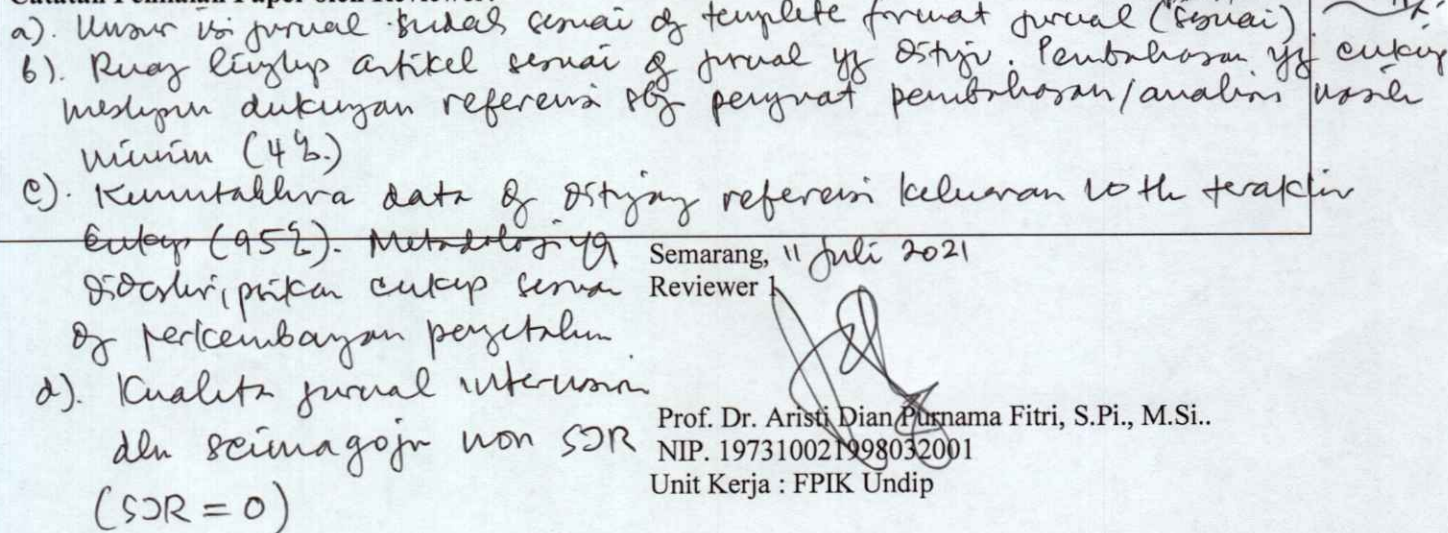 Catatan Penilaian Paper oleh Reviewer:
a). Unsur isi jurnal sudah sesuai dg templete format jurnal (sesuai)
b). Ruang lingkup artikel sesuai dg jurnal yg dituju. Pembahasan yg cukup
meskipun dukungan referensi sbg penguat pembahasan/analisis hasil
minim (4%.)
c). Kemutakhiran data dg ditunjang referensi keluaran 10 th terakhir
cukup (95%). Metodologi yg
dideskripsikan cukup sesuai
dg perkembangan pengetahuan
d). Kualitas jurnal
dlm scimagojr non SJR
(SJR = 0)
Semarang, 11 Juli 2021
Reviewer 1
Prof. Dr. Aristi Dian Purnama Fitri, S.Pi., M.Si..
NIP. 197310021998032001
Unit Kerja : FPIK Undip